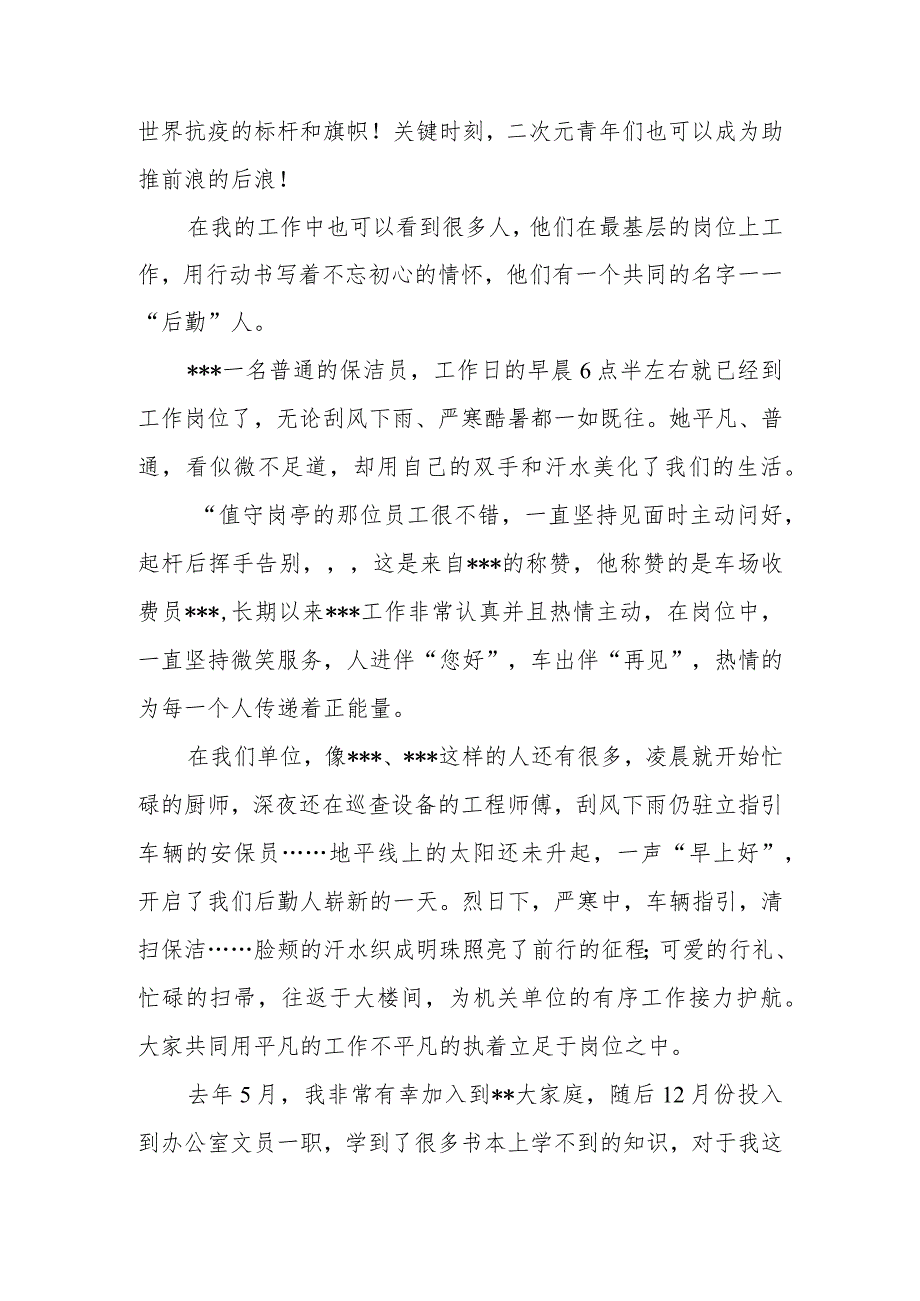 世界抗疫的标杆和旗帜！关键时刻，二次元青年们也可以成为助
推前浪的后浪！
在我的工作中也可以看到很多人，他们在最基层的岗位上工
作，用行动书写着不忘初心的情怀，他们有一个共同的名字一一
“后勤”人。
***一名普通的保洁员，工作日的早晨6点半左右就已经到
工作岗位了，无论刮风下雨、严寒酷暑都一如既往。她平凡、普
通，看似微不足道，却用自己的双手和汗水美化了我们的生活。
“值守岗亭的那位员工很不错，一直坚持见面时主动问好，
起杆后挥手告别，，，这是来自***的称赞，他称赞的是车场收
费员***,长期以来***工作非常认真并且热情主动，在岗位中，
一直坚持微笑服务，人进伴“您好”，车出伴“再见”，热情的
为每一个人传递着正能量。
在我们单位，像***、***这样的人还有很多，凌晨就开始忙
碌的厨师，深夜还在巡查设备的工程师傅，刮风下雨仍驻立指引
车辆的安保员……地平线上的太阳还未升起，一声“早上好”，
开启了我们后勤人崭新的一天。烈日下，严寒中，车辆指引，清
扫保洁……脸颊的汗水织成明珠照亮了前行的征程；可爱的行礼、
忙碌的扫帚，往返于大楼间，为机关单位的有序工作接力护航。
大家共同用平凡的工作不平凡的执着立足于岗位之中。
去年5月，我非常有幸加入到**大家庭，随后12月份投入
到办公室文员一职，学到了很多书本上学不到的知识，对于我这